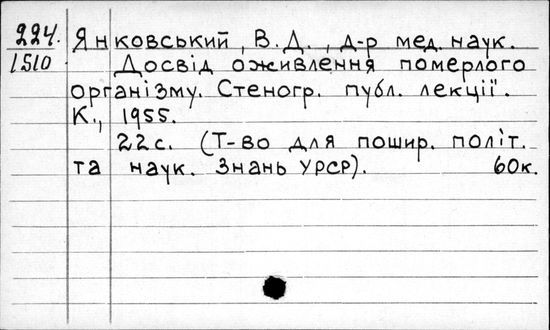 224. Янковський, В. Д., д-р мед. наук.
1510. Досвід оживлення померлого
організму. Стеногр. публ. лекції".
К., 1955.
22с. (Т-во для пошир. політ.
та наук. Знань УРСР). 60к.